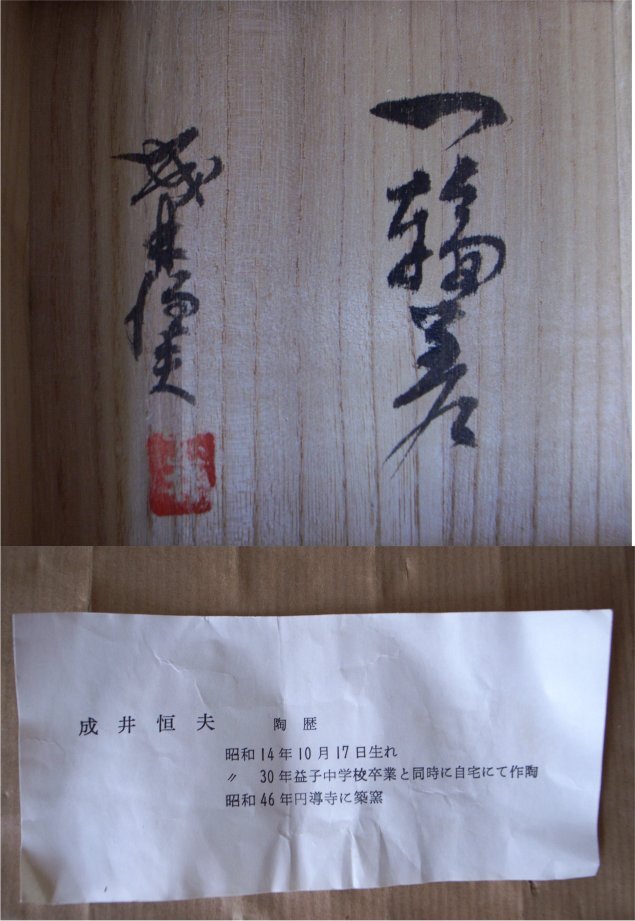 一輪差
成井恒夫
成井恒夫 陶歴
昭和14年10月17日生れ
〃 30年益子中学校卒業と同時に自宅にて作陶
昭和46年円導寺に築窯